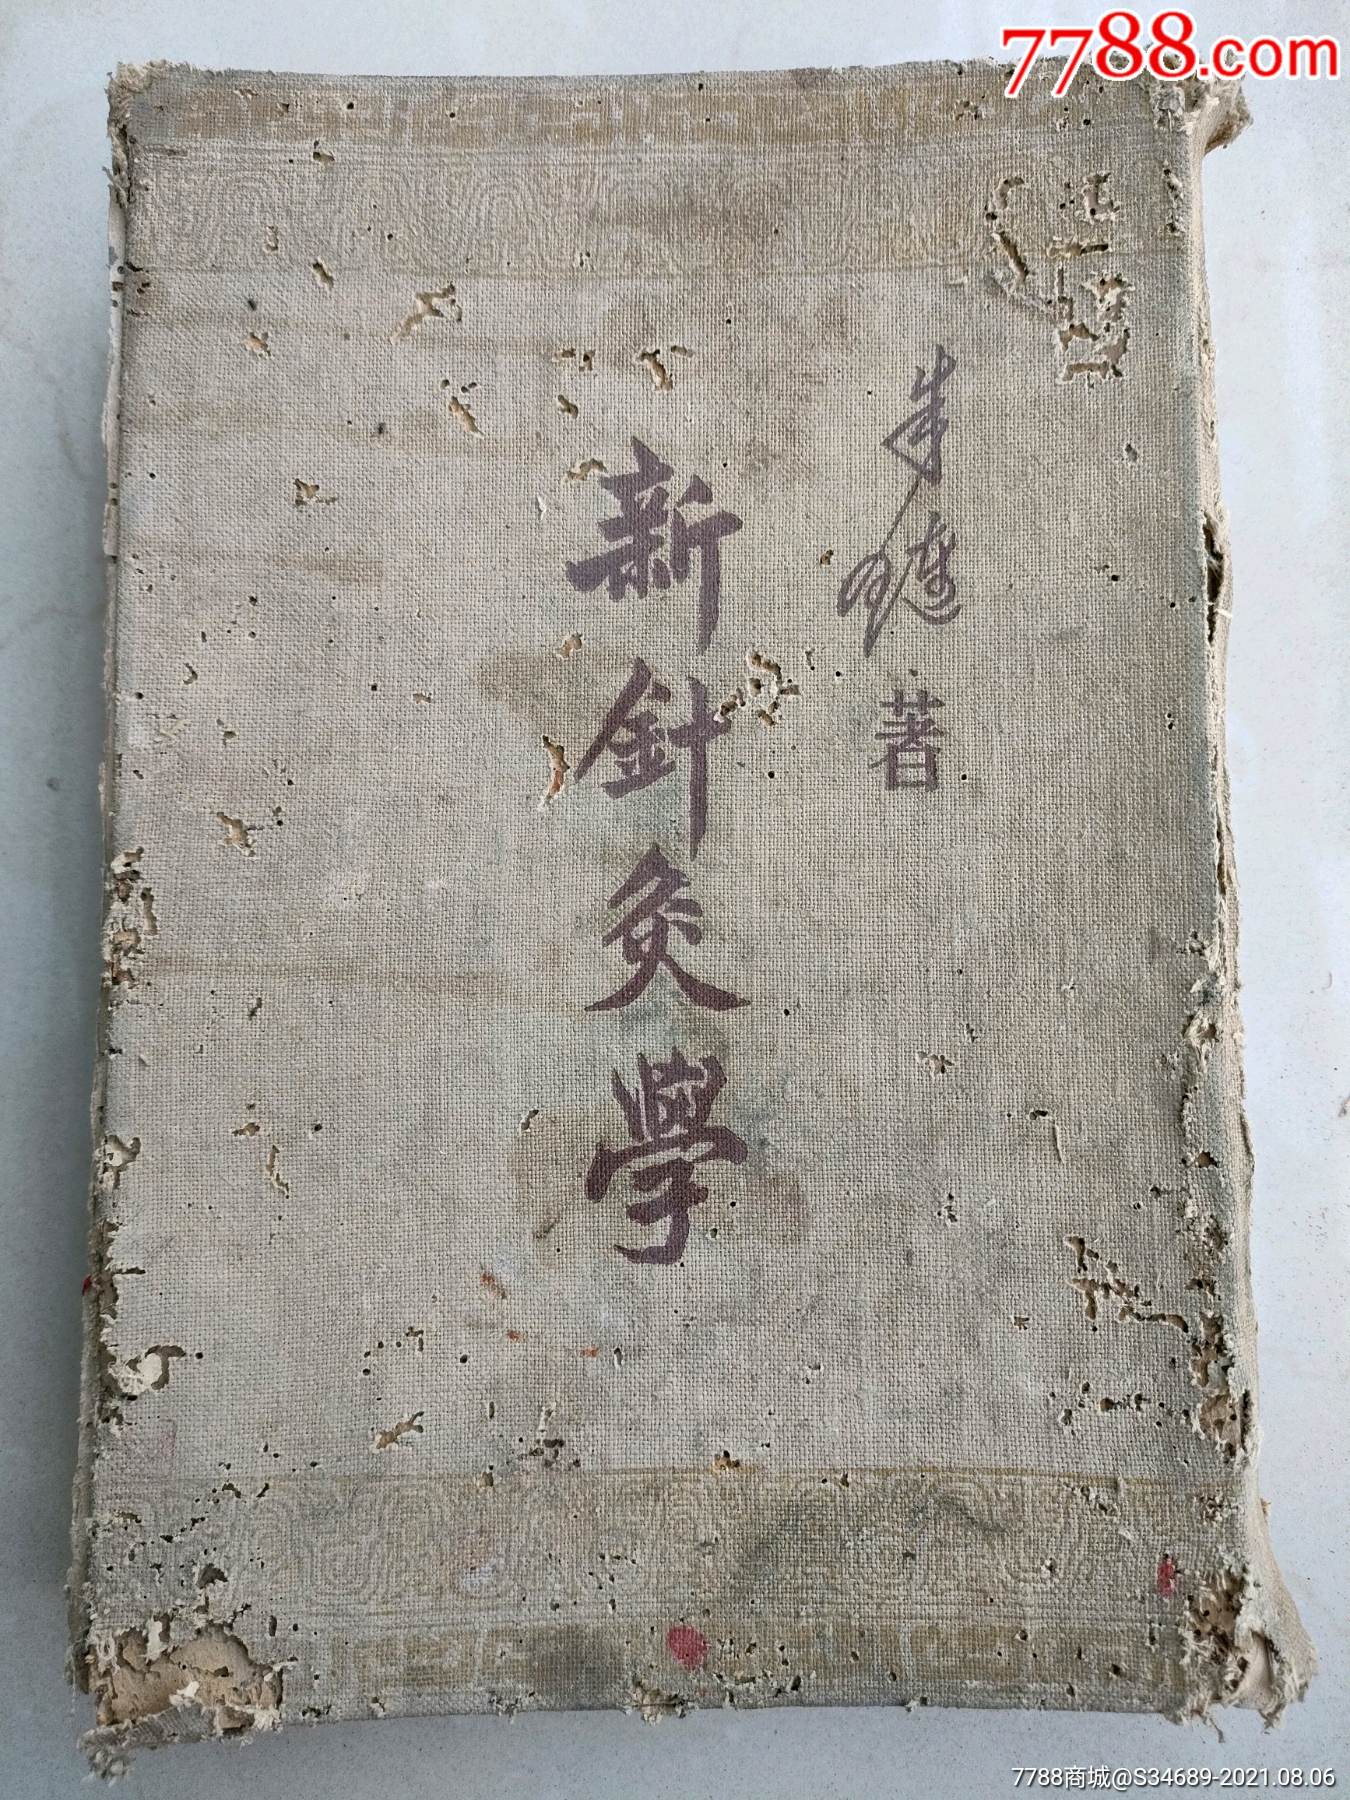 7788.com
朱璉
著
新針灸學
7788商城@S34689-2021.08.06